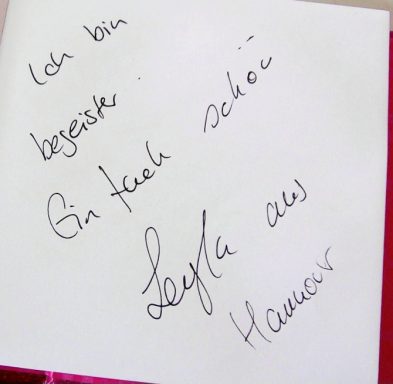 Ich bin
begeister.
Ein fach schö
Leyla aus
Hannovr